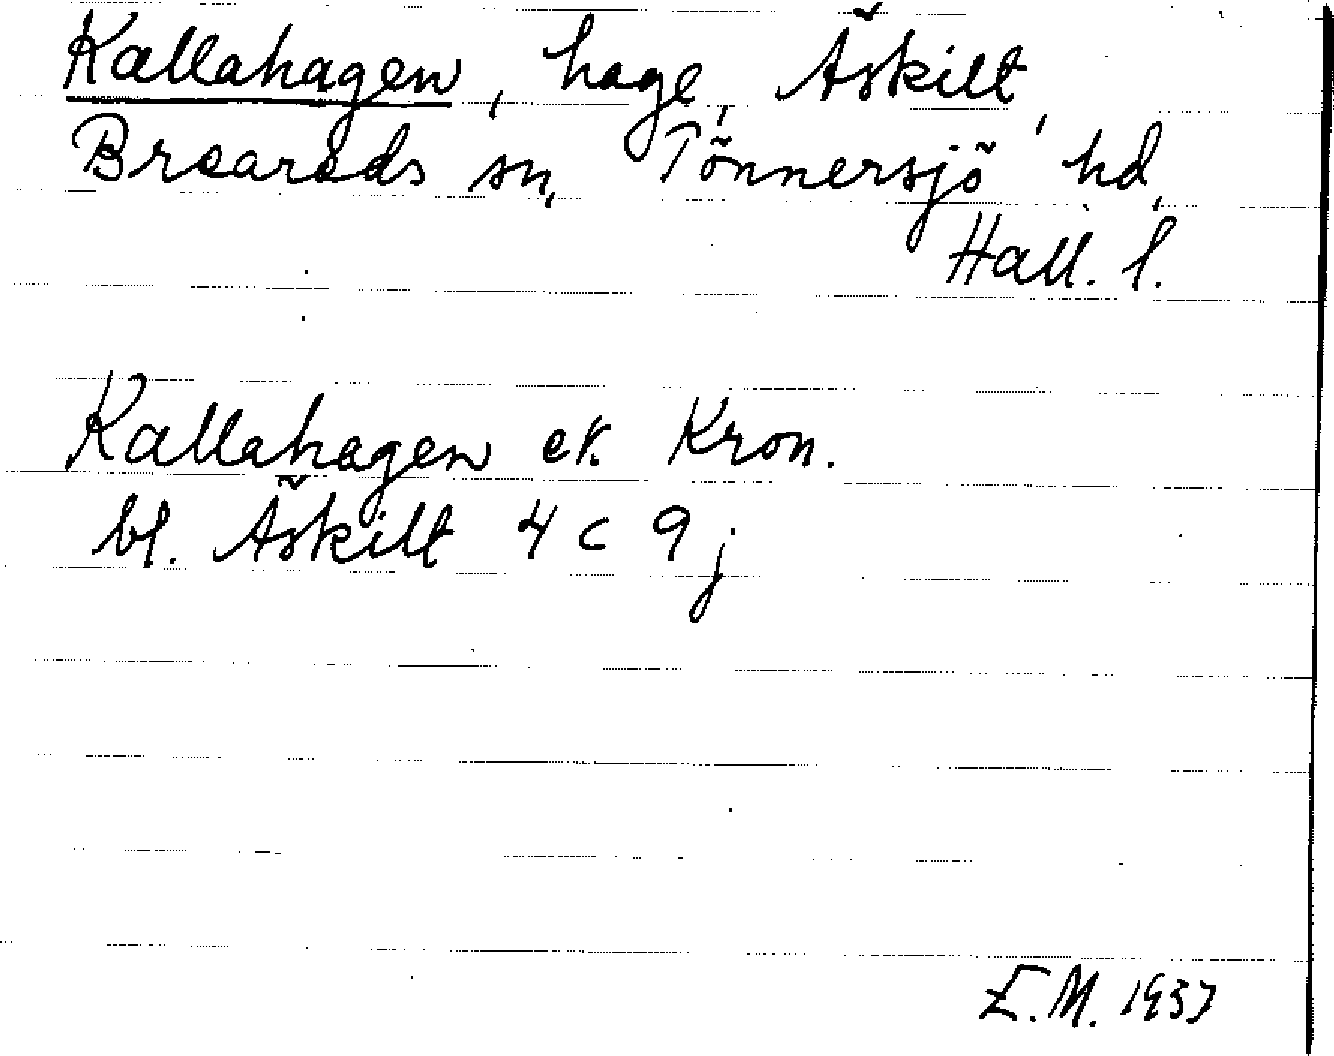 Kallahagen, hage, Äskilt,
Breareds sn, Tönnersjö hd,
Hall. l.
Kallahagen ek. Kron.
bl. Äskilt 4 c 9 j
E.M. 1937